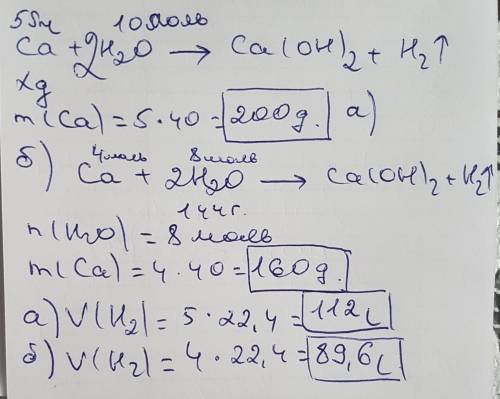 5 моль 10 моль
Ca + 2H2O → Ca(OH)2 + H2↑
xg
m(Ca) = 5·40 = 200g. a)
4 моль 8 моль
б) Ca + 2H2O → Ca(OH)2 + H2↑
144г.
n(H2O) = 8 моль
m(Ca) = 4·40 = 160g.
а) V(H2) = 5·22,4 = 112L
б) V(H2) = 4·22,4 = 89,6L